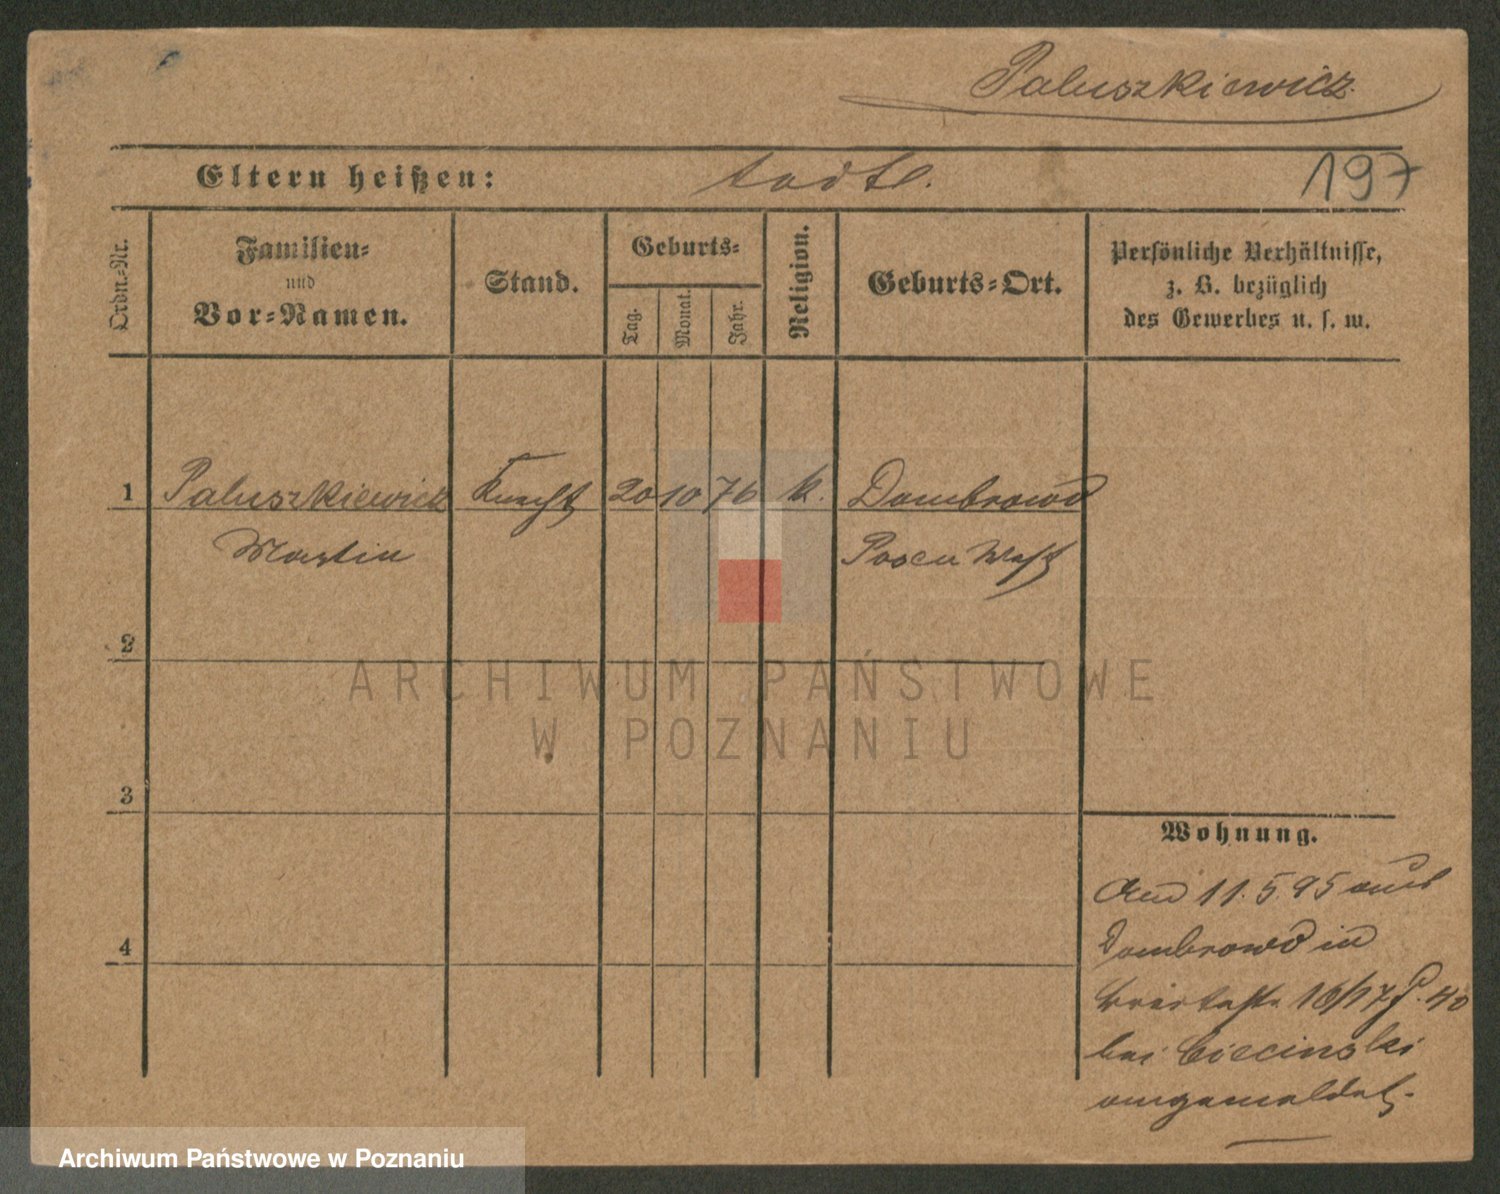 Paluszkiewicz.
Eltern heißen: todt.
197
Ordn.-Nr.
Familien-
und
Vor-Namen.
Stand.
Geburts-
Tag.
Monat.
Jahr.
Religion.
Geburts-Ort.
Persönliche Verhältnisse,
z. B. bezüglich
des Gewerbes u. s. w.
1 Paluszkiewicz Knecht 20 10 76 k. Dombrowo
Martin Posen West
2
3
4
Wohnung.
Am 11.5.95 aus
Dombrowo in
16/17 40
bei Ciecinski
angemeldet.
ARCHIWUM PAŃSTWOWE
W POZNANIU
Archiwum Państwowe w Poznaniu